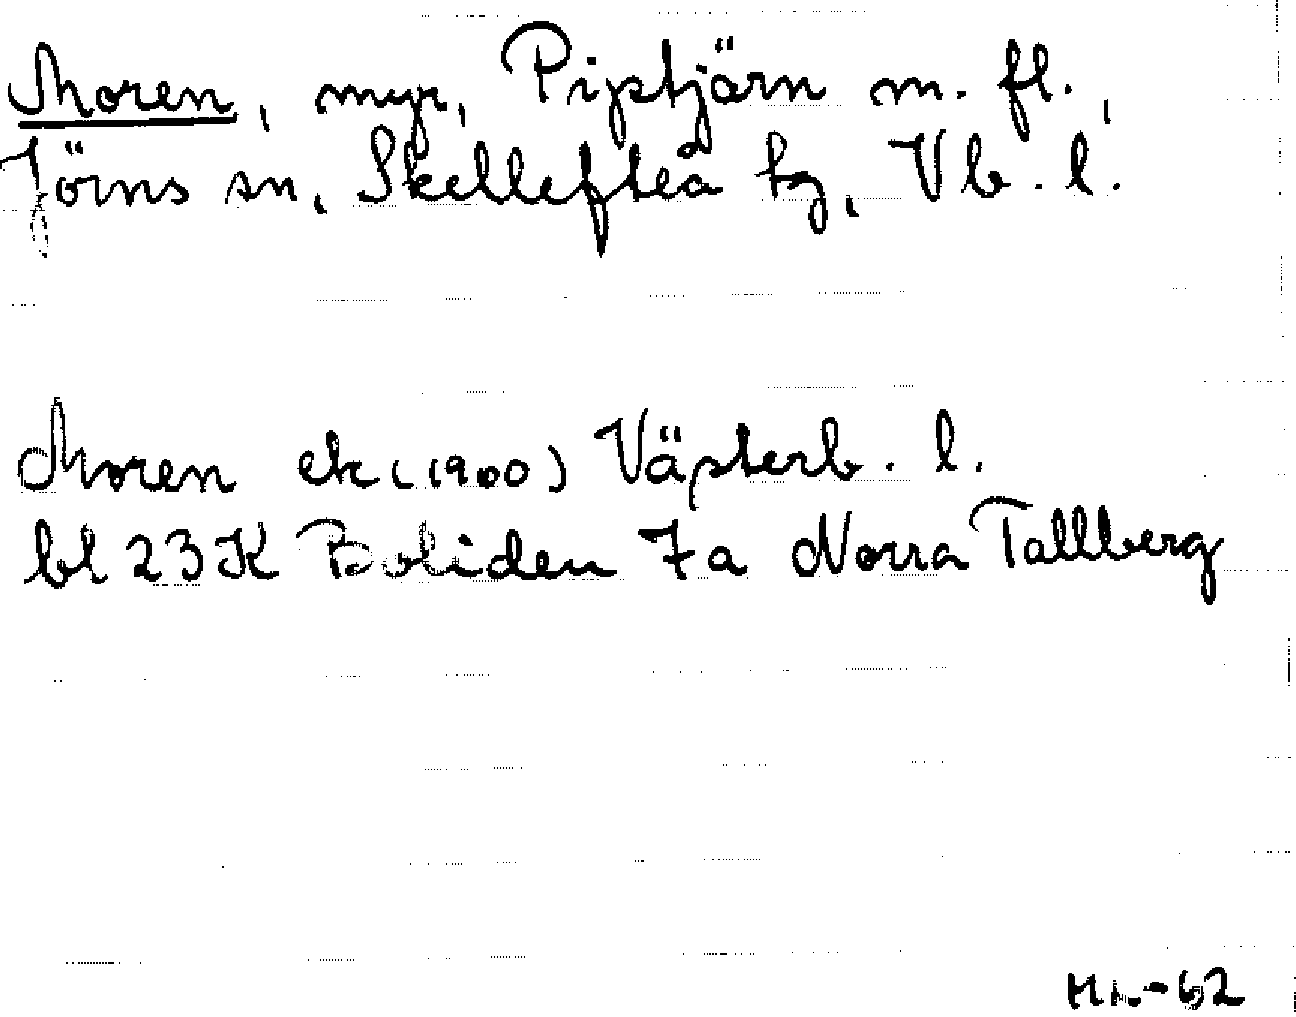 Moren, myr, Pipstjärn m. fl.,
Jörns sn, Skellefteå tg, Vb. l.
Moren ek (1900) Västerb. l.
bl 23K Boliden 7a Norra Tallberg